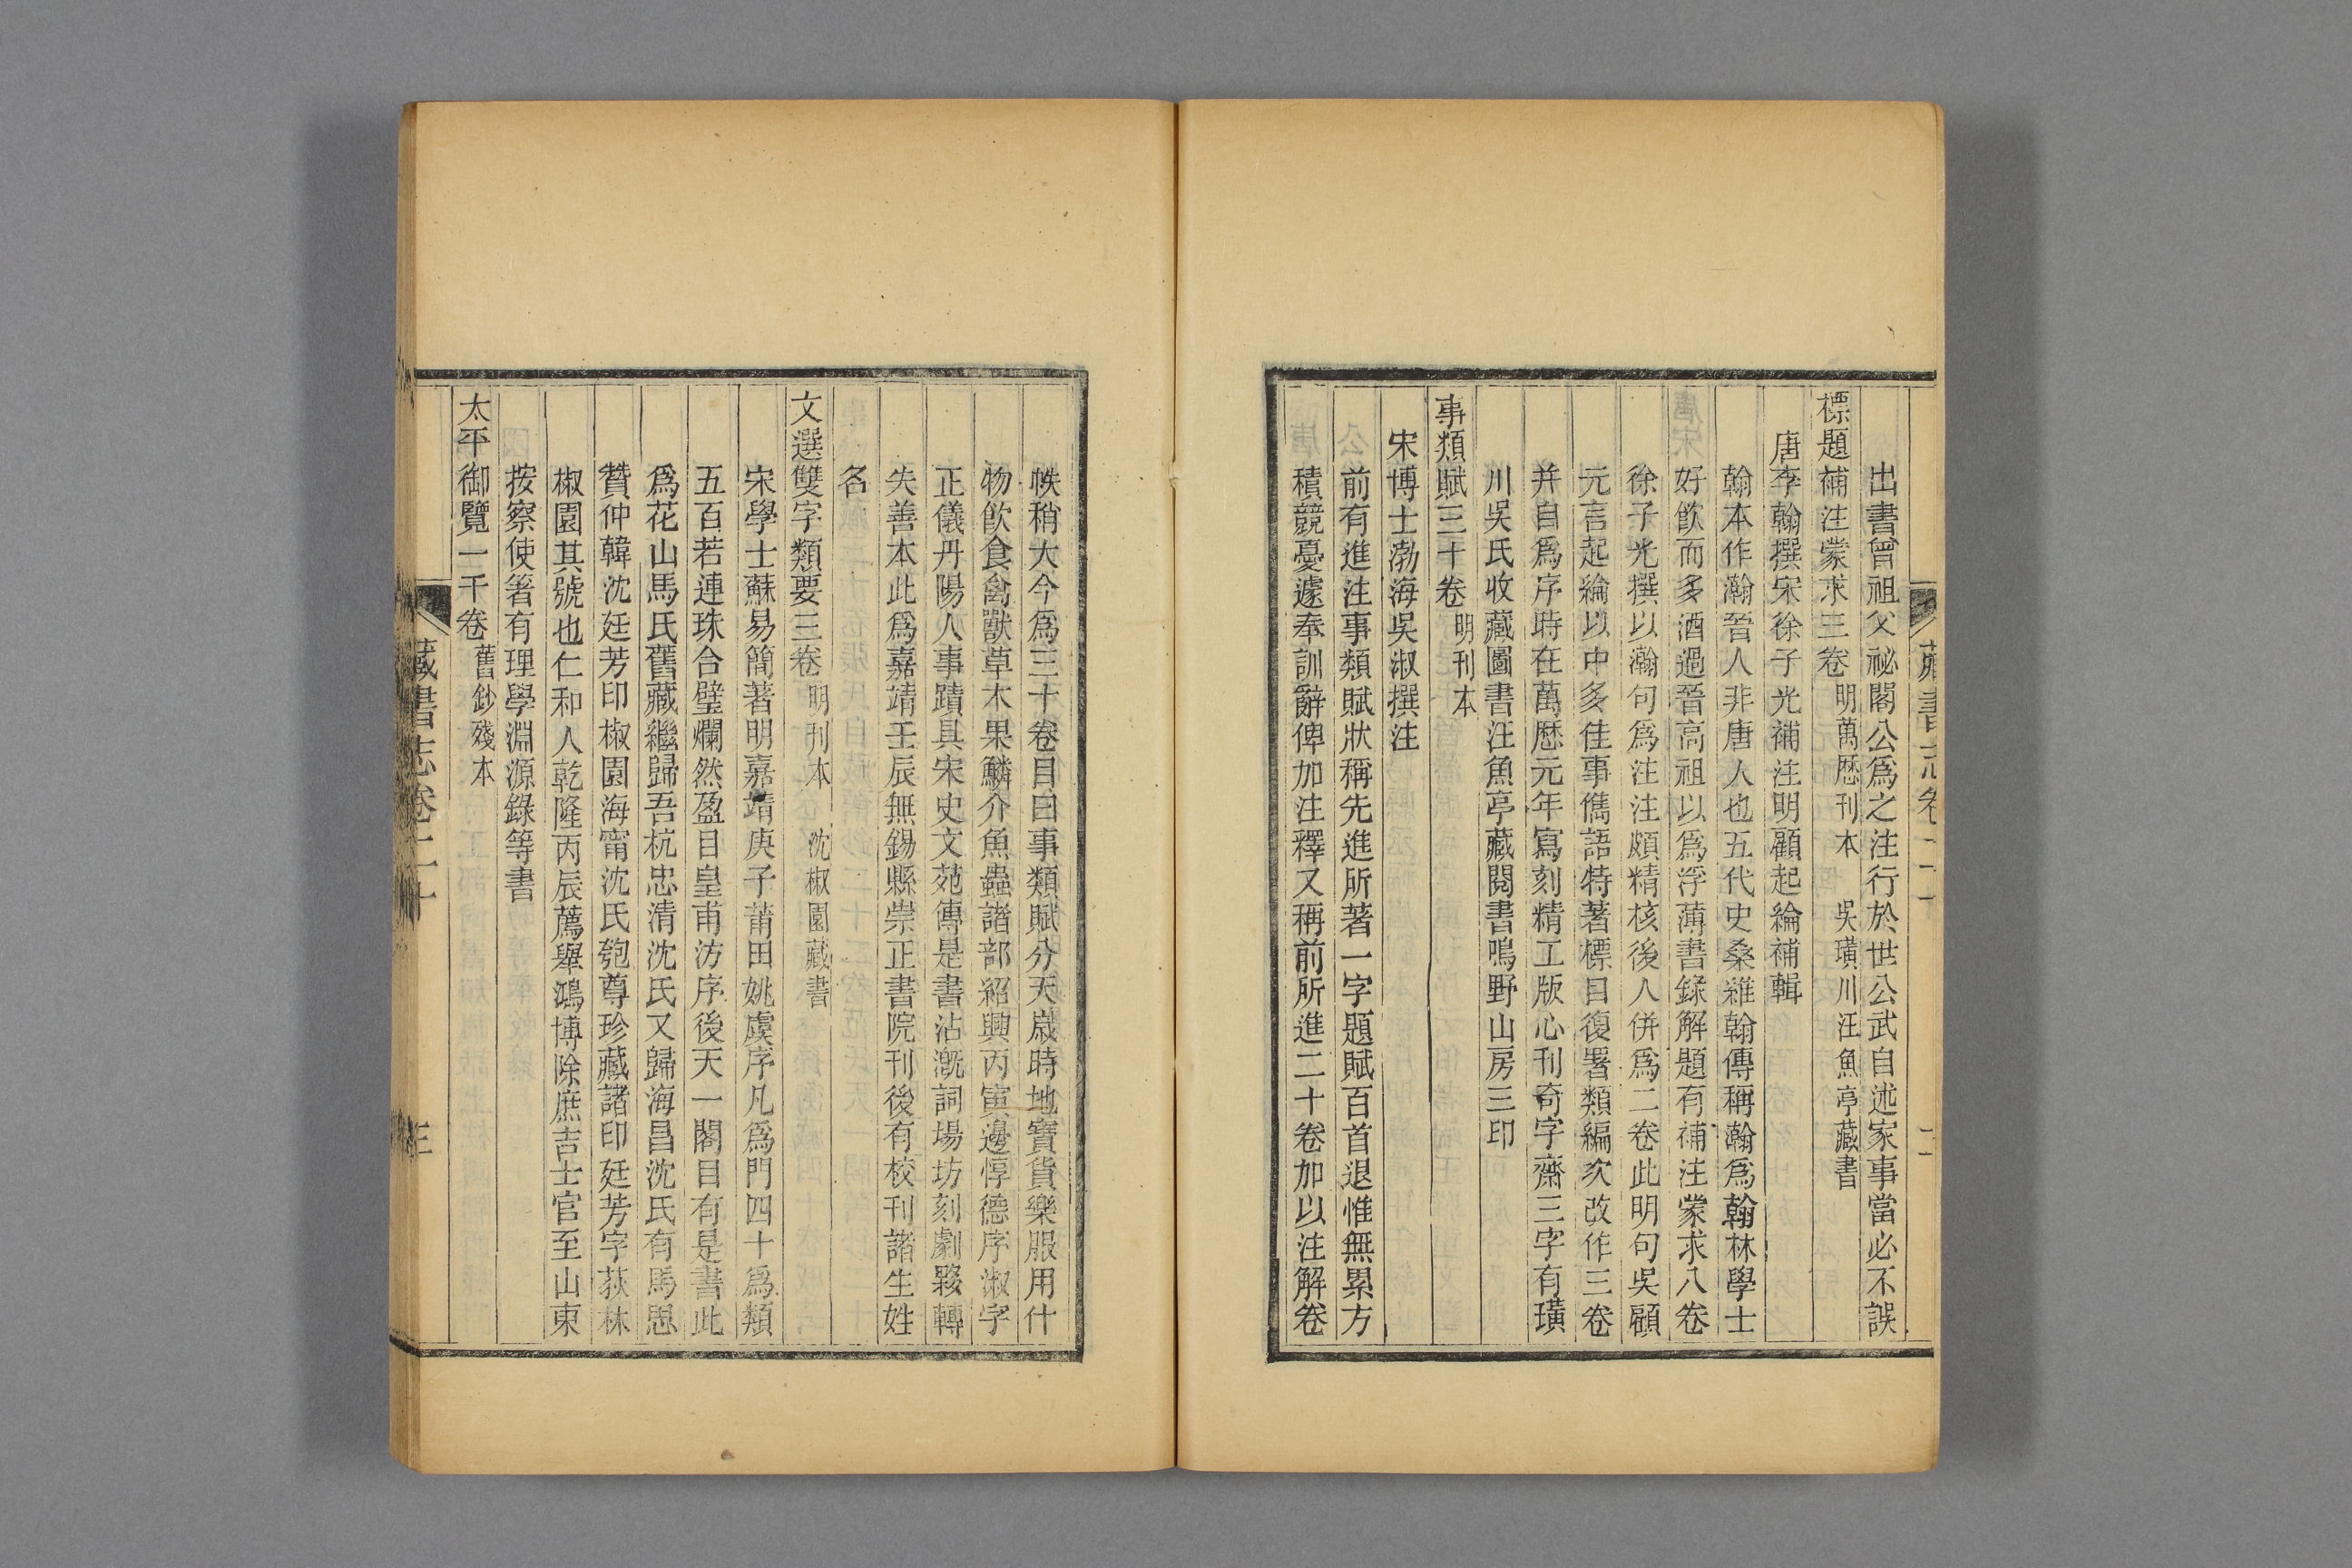 出書曾祖父祕閣公爲之注行於世公武自述家事當必不誤
標題補注蒙求三卷 明萬厯刊本 吳璜川汪魚亭藏書
唐李翰撰宋徐子光補注明顧起綸補輯
翰本作瀚晉人非唐人也五代史桑維翰傳稱瀚爲翰林學士
好飲而多酒過晉高祖以爲浮薄書錄解題有補注蒙求八卷
徐子光撰以瀚句爲注注頗精核後人併爲二卷此明句吳顧
元言起綸以中多佳事儁語特著標目復署類編次改作三卷
并自爲序時在萬厯元年寫刻精工版心刊奇字齋三字有璜
川吳氏收藏圖書汪魚亭藏閱書鳴野山房三印
事類賦三十卷 明刊本
宋博士渤海吳淑撰注
前有進注事類賦狀稱先進所著一字題賦百首退惟無累方
積競憂遽奉訓辭俾加注釋又稱前所進二十卷加以注解卷
帙稍大今爲三十卷目曰事類賦分天歲時地寶貨樂服用什
物飲食禽獸草木果鱗介魚蟲諸部紹興丙寅邊惇德序淑字
正儀丹陽人事蹟具宋史文苑傳是書沾漑詞場坊刻劇夥轉
失善本此爲嘉靖壬辰無錫縣崇正書院刊後有校刊諸生姓
名
文選雙字類要三卷 明刊本 沈椒園藏書
宋學士蘇易簡著明嘉靖庚子莆田姚虞序凡爲門四十爲類
五百若連珠合璧爛然盈目皇甫汸序後天一閣目有是書此
爲花山馬氏舊藏繼歸吾杭忠清沈氏又歸海昌沈氏有馬思
贊仲韓沈廷芳印椒園海甯沈氏匏尊珍藏諸印廷芳字荻林
椒園其號也仁和人乾隆丙辰薦舉鴻博除庶吉士官至山東
按察使箸有理學淵源錄等書
太平御覽一千卷 舊鈔殘本
藏書志卷二十 三